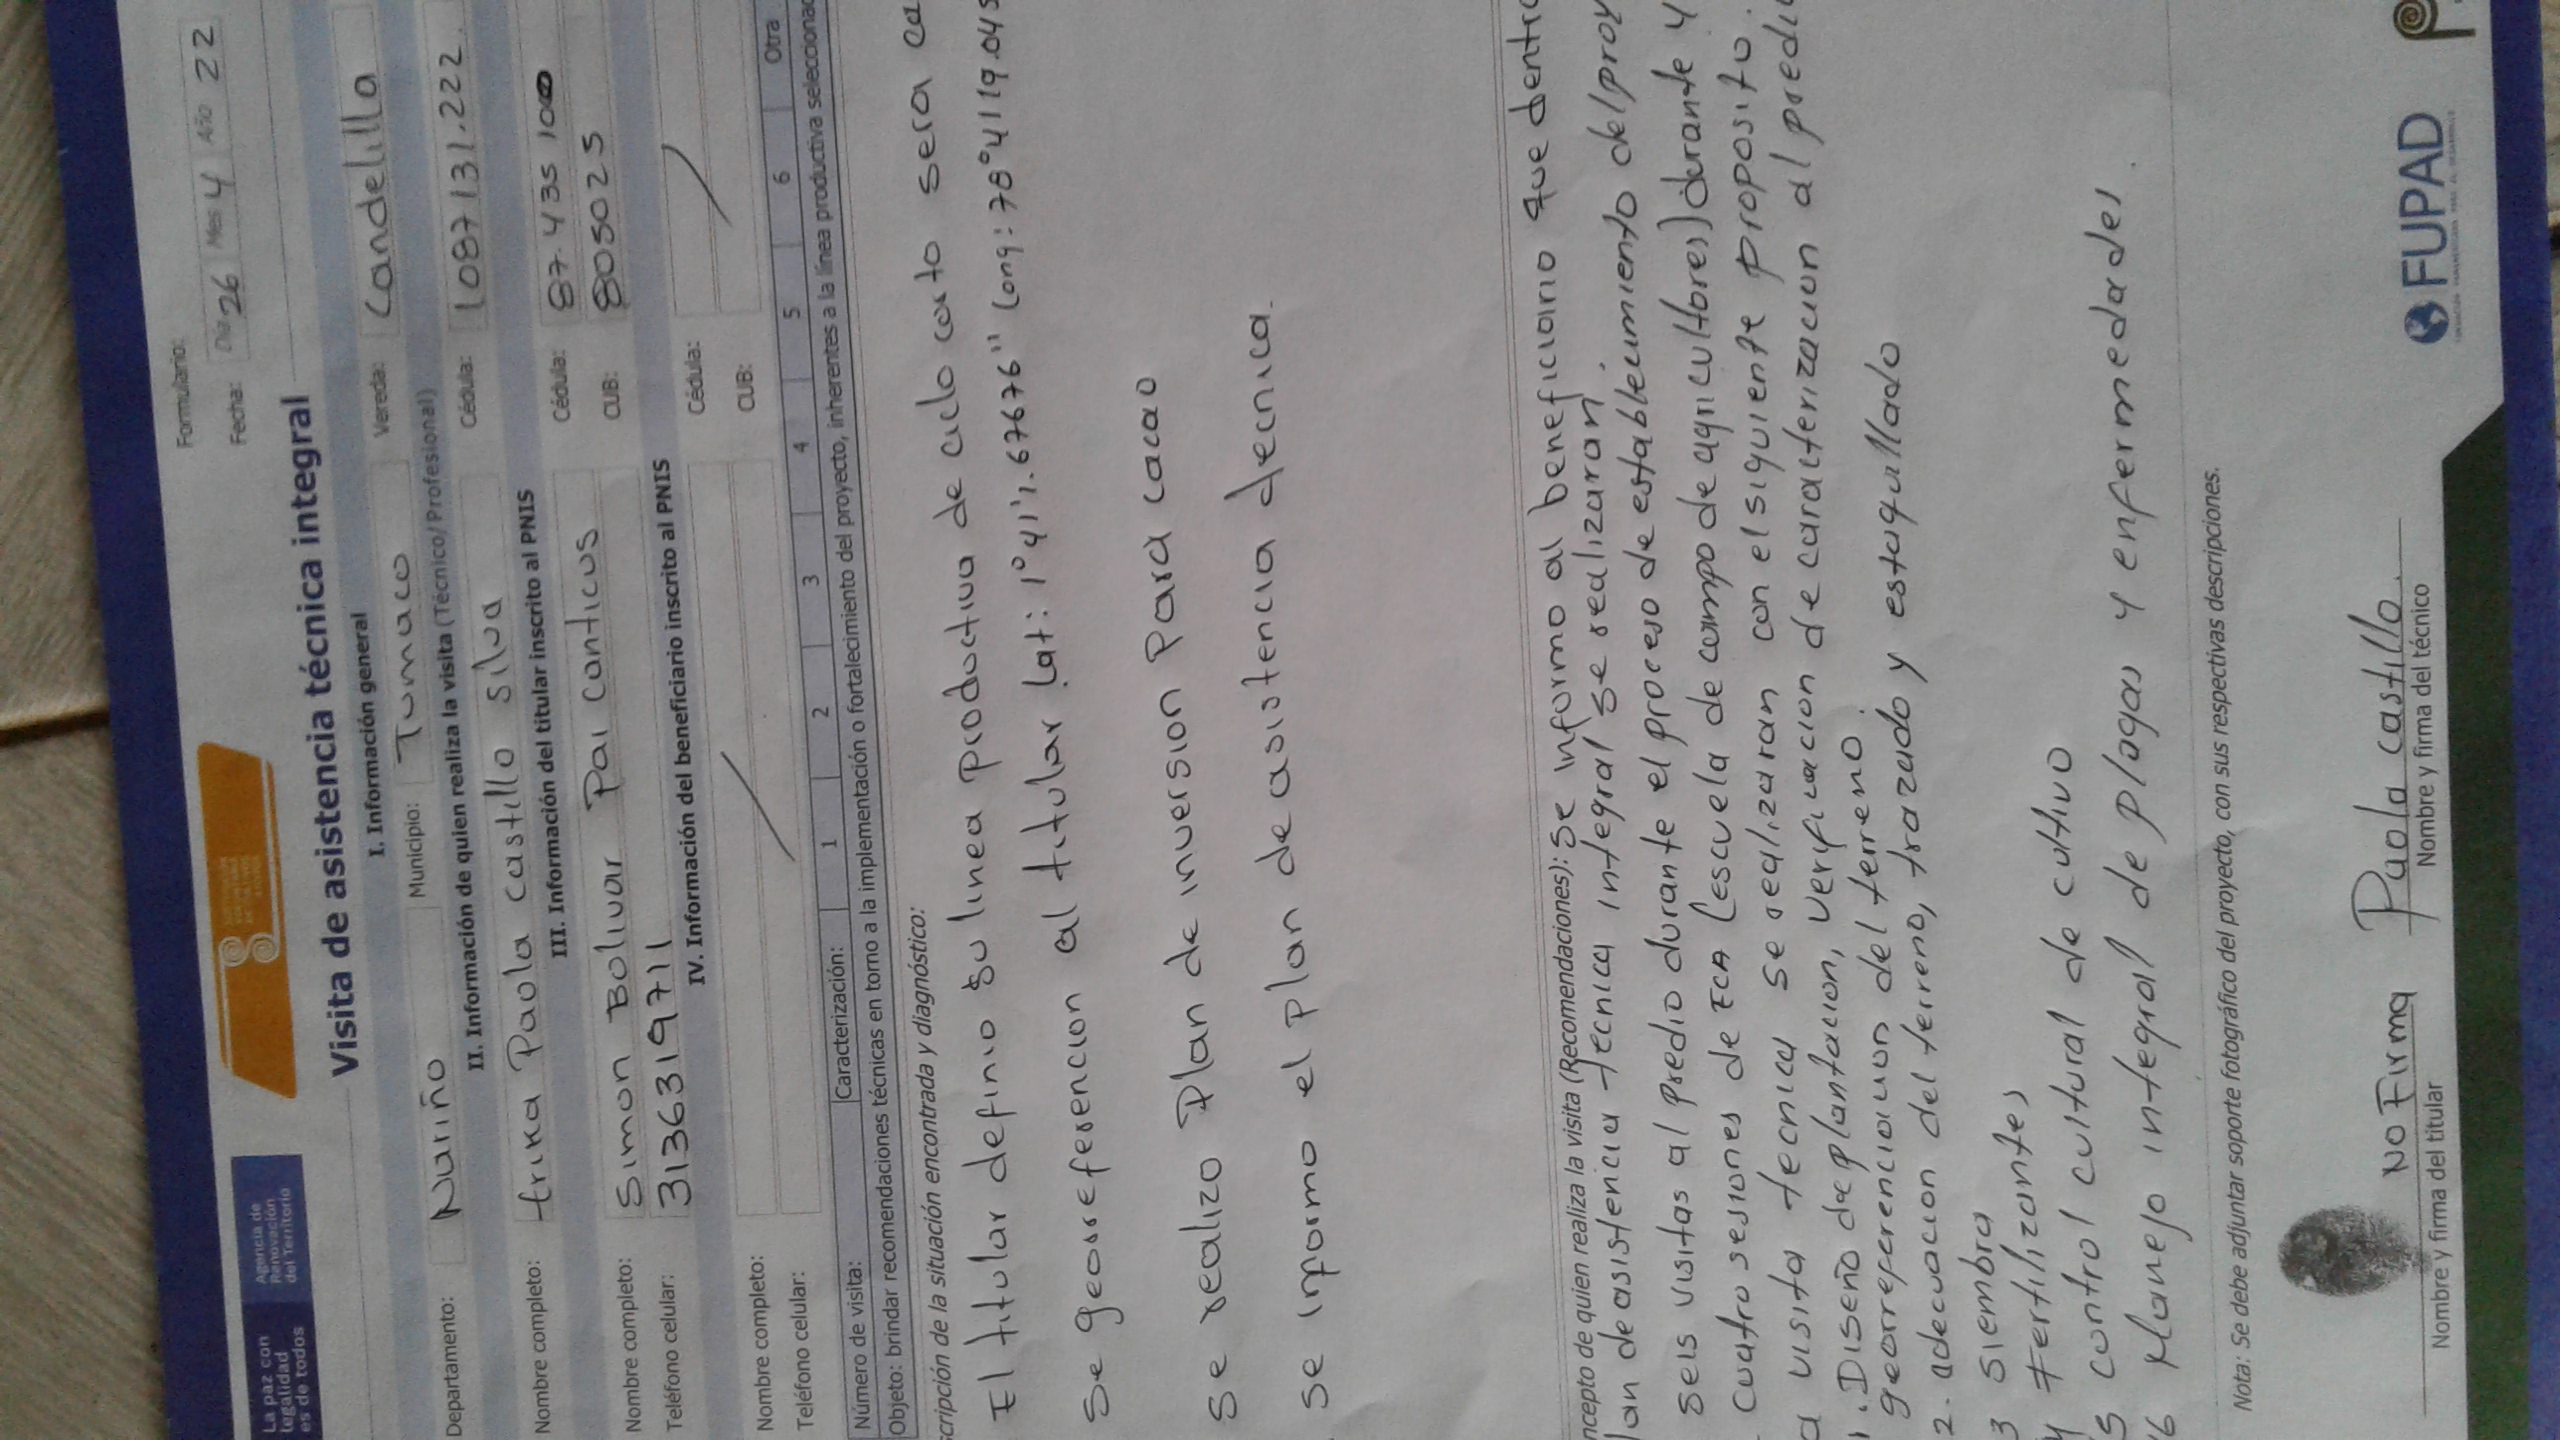 La paz con
legalidad
es de todos
Agencia de
Renovación
del Territorio
Formulario:
Fecha: Día 26 Mes 4 Año 22
Visita de asistencia técnica integral
I. Información general
Departamento: Nariño Municipio: Tumaco Vereda: Candelilla
II. Información de quien realiza la visita (Técnico/Profesional)
Nombre completo: Erika Paola castillo silva Cédula: 1087131.222
III. Información del titular inscrito al PNIS
Nombre completo: Simon Bolivar Pai Canticus Cédula: 87.435 100
Teléfono celular: 3136319711 CUB: 805025
IV. Información del beneficiario inscrito al PNIS
Nombre completo: Cédula:
Teléfono celular: CUB:
Número de visita: Caracterización: 1 2 3 4 5 6 Otra
Objeto: brindar recomendaciones técnicas en torno a la implementación o fortalecimiento del proyecto, inherentes a la línea productiva seleccionad
scripción de la situación encontrada y diagnóstico:
El titular definio su linea productiva de ciclo corto sera ca
Se georeferencion al titular Lat: 1°41'1.67676" Long: 78°41'19.045
Se realizo Plan de inversion Para cacao
se informo el plan de asistencia tecnica.
ncepto de quien realiza la visita (Recomendaciones): Se informo al beneficiario que dentro
lan de asistencia tecnica integral se realizaran.
seis visitas al predio durante el proceso de establecimiento del proy
cuatro sesiones de ECA (escuela de campo de agricultores) durante y
a visita tecnica se realizaran con el siguiente proposito.
1. Diseño de plantacion, verificacion de caracterizacion al predio
georreferenciacion del terreno.
2. adecuacion del terreno, trazado y estaquillado
3 siembra
4 fertilizantes
5 control cultural de cultivo
6 Manejo integral de plagas y enfermedades.
Nota: Se debe adjuntar soporte fotográfico del proyecto, con sus respectivas descripciones.
NO Firma
Nombre y firma del titular
Paola castillo.
Nombre y firma del técnico
FUPAD